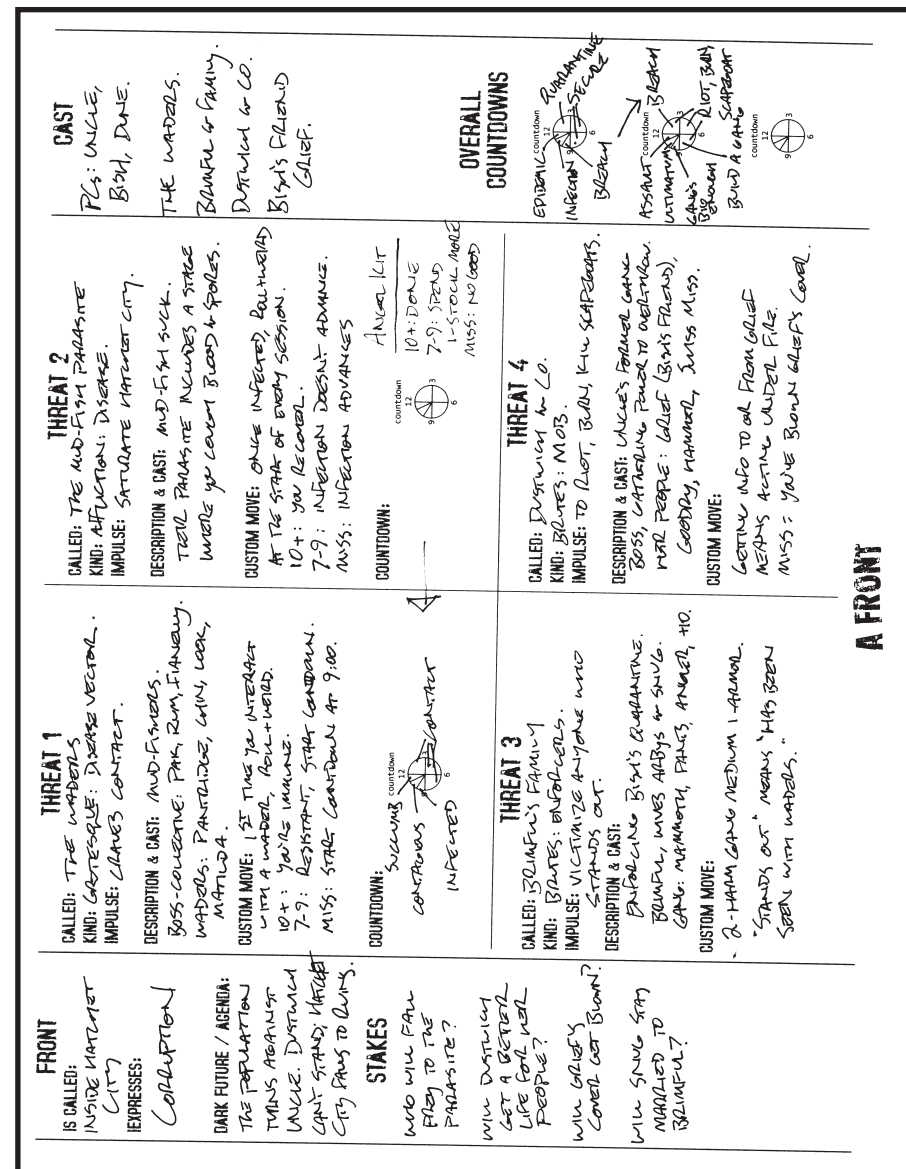 A FRONT
FRONT
IS CALLED:
INSIDE HATCHET
CITY
EXPRESSES:
CORRUPTION
DARK FUTURE / AGENDA:
THE POPULATION
TURNS AGAINST
UNCLE. DUSTWICH
CAN'T STAND; HATCHET
CITY FALLS TO RUINS.
STAKES
WHO WILL FALL
PREY TO THE
PARASITE?
WILL DUSTWICH
GET A BETTER
LIFE FOR HER
PEOPLE?
WILL GRIEF'S
COVER GET BLOWN?
WILL SNUG STAY
MARRIED TO
BRIMFUL?
THREAT 1
CALLED: THE WADERS
KIND: GROTESQUE: DISEASE VECTOR.
IMPULSE: CRAVES CONTACT.
DESCRIPTION & CAST: MUD-FISHERS.
BOSS-COLLECTIVE: PAK, RUM,
WADERS: PARTRIDGE, CHIN, LOOK,
MATILDA.
CUSTOM MOVE: 1ST TIME YOU INTERACT
WITH A WADER, ROLL+WEIRD.
10+: YOU'RE IMMUNE.
7-9: RESISTANT, START COUNTDOWN.
MISS: START COUNTDOWN AT 9:00.
COUNTDOWN:
countdown
12
SUCCUMB
CONTAGIOUS
CONTACT
INFECTED
THREAT 2
CALLED: THE MUD-FISH PARASITE
KIND: AFFLICTION: DISEASE.
IMPULSE: SATURATE HATCHET CITY.
DESCRIPTION & CAST: MUD-FISH SUCK.
THEIR PARASITE INCLUDES A STAGE
WHERE YOU COUGH BLOOD & SPORES.
CUSTOM MOVE: ONCE INFECTED, ROLL+WEIRD
AT THE START OF EVERY SESSION.
10+: YOU RECOVER.
7-9: INFECTION DOESN'T ADVANCE.
MISS: INFECTION ADVANCES
COUNTDOWN:
countdown
12
9
3
6
ANGEL KIT
10+: DONE
7-9: SPEND
1-STOCK MORE
MISS: NO GOOD
THREAT 3
CALLED: BRIMFUL'S FAMILY
KIND: BRUTES: ENFORCERS.
IMPULSE: VICTIMIZE ANYONE WHO
STANDS OUT.
DESCRIPTION & CAST:
ENFORCING BISH'S QUARANTINE.
BRIMFUL, WIVES ARBYS & SNUG.
GANG: MAMMOTH, FANG, ANGLER, +10.
CUSTOM MOVE:
- 2-HARM GANG MEDIUM 1-ARMOR.
"STANDS OUT" MEANS "HAS BEEN
SEEN WITH WADERS."
THREAT 4
CALLED: DUSTWICH & CO.
KIND: BRUTES: MOB.
IMPULSE: TO RIOT, BURN, KILL SCAPEGOATS.
DESCRIPTION & CAST: UNCLE'S FORMER GANG
BOSS, GATHERING POWER TO OVERTHROW.
HER PEOPLE: GRIEF (BISH'S FRIEND),
GOODRY, HAMMER, MISS.
CUSTOM MOVE:
GETTING INFO TO OR FROM GRIEF
MEANS ACTING UNDER FIRE.
MISS: YOU'VE BLOWN GRIEF'S COVER.
CAST
PCs: UNCLE,
BISH, DUNE.
THE WADERS.
BRIMFUL & FAMILY.
DUSTWICH & CO.
BISH'S FRIEND
GRIEF.
OVERALL
COUNTDOWNS
countdown
12
9
3
6
EPIDEMIC
QUARANTINE
SECURE
INFECTION
BREACH
countdown
12
9
3
6
ASSAULT
BREACH
ULTIMATUMS
RIOT, BURN,
SCAPEGOAT
GANG'S
BIG
ENOUGH
BUILD A GANG
countdown
12
9
3
6